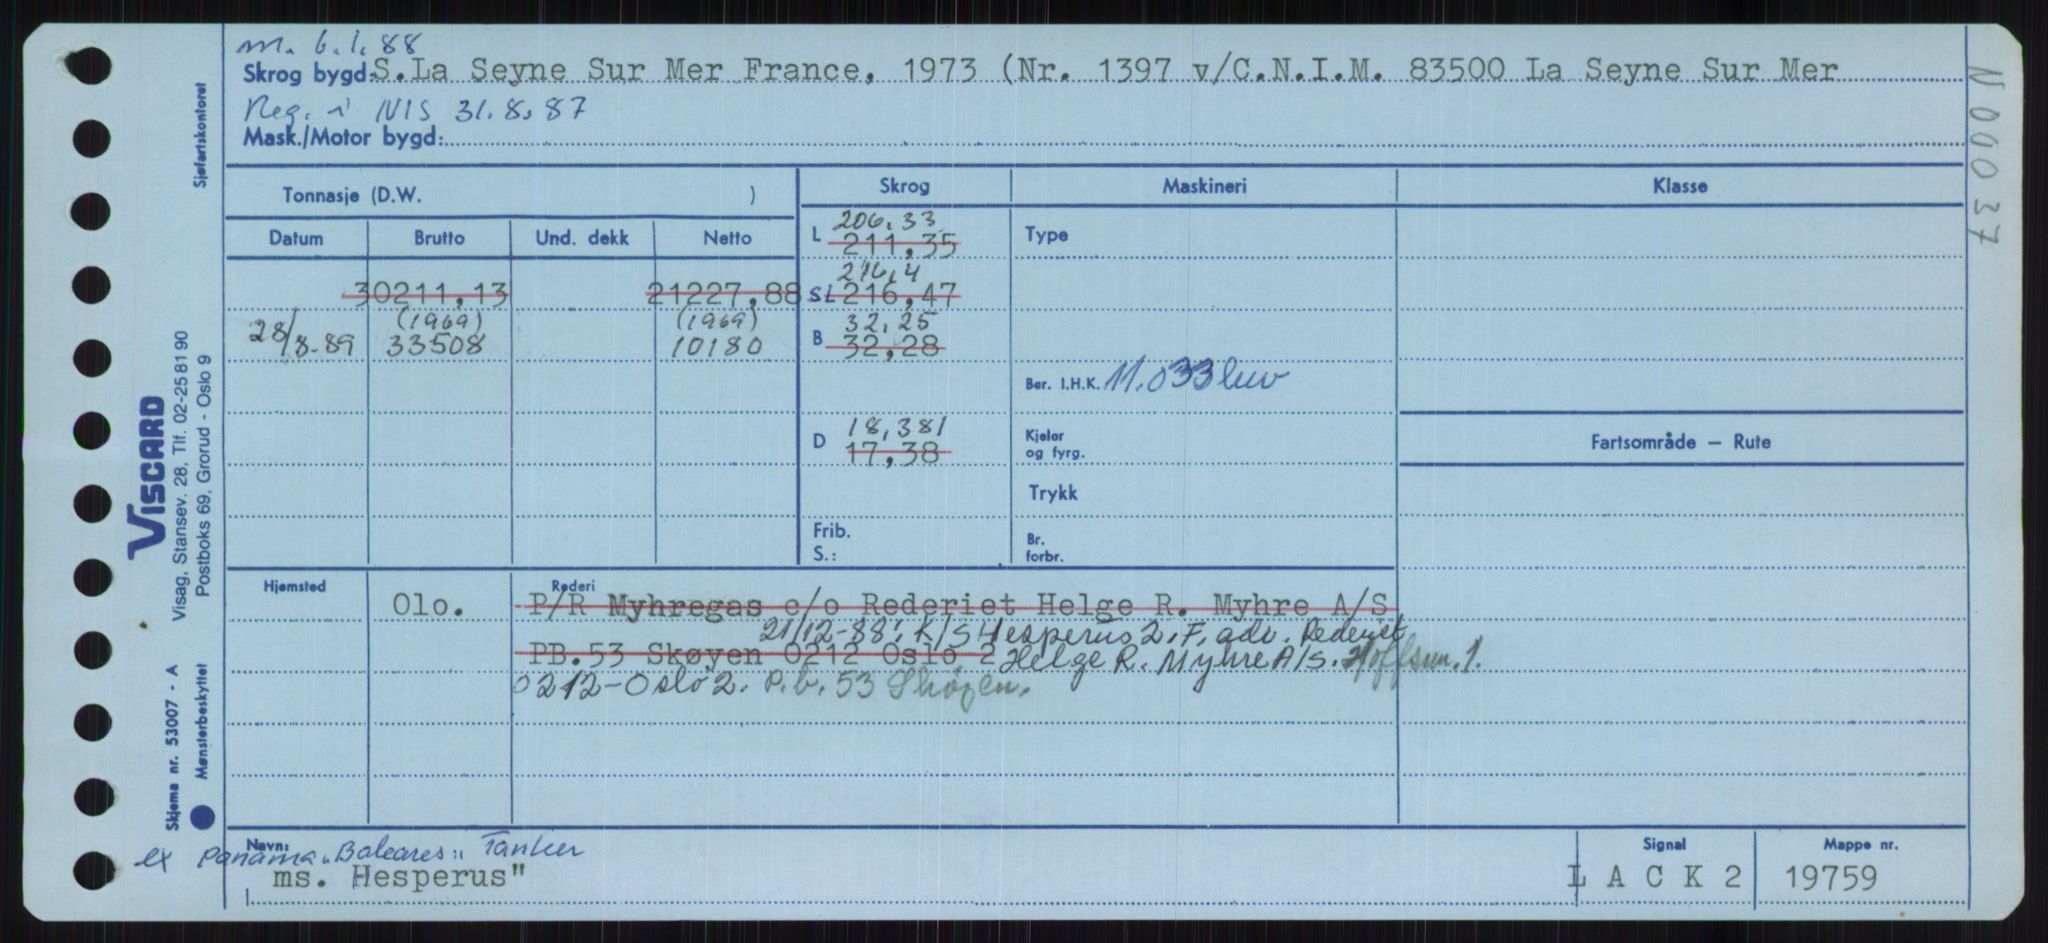 m. 6.1.88
Skrog bygd: S.La Seyne Sur Mer France, 1973 (Nr. 1397 v/C.N.I.M. 83500 La Seyne Sur Mer
Reg. i NIS 31.8.87
Mask./Motor bygd:
N 000 37
Sjøfartskontoret
Tonnasje (D.W. )
Skrog
Maskineri
Klasse
Datum Brutto Und. dekk Netto
L 206.33
211,35
Type
216,4
30211,13 21227,88 SL 216,47
(1969) (1969) 32.25
28/8-89 33508 10180 B 32,28
Ber. I.H.K. 11.033 kw
18,381
D 17,38
Kjeler
og fyrg.
Fartsområde – Rute
Trykk
Frib.
S.:
Br.
forbr.
VISCARD
Visag, Stansev. 28, Tlf. 02-25 81 90
Postboks 69, Grorud - Oslo 9
Hjemsted Rederi
Olo. P/R Myhregas c/o Rederiet Helge R. Myhre A/S
21/12-88: K/S Hesperus 2. F. adv. Rederiet
PB.53 Skøyen 0212 Oslo 2 Helge R. Myhre A/S. Hoffsvn. 1.
0212-Oslo 2. P.b. 53 Skøyen.
Skjema nr. 53007 - A
Mønsterbeskyttet
Navn:
ex Panama "Baleares" Tanker
ms. Hesperus"
Signal
L A C K 2
Mappe nr.
19759